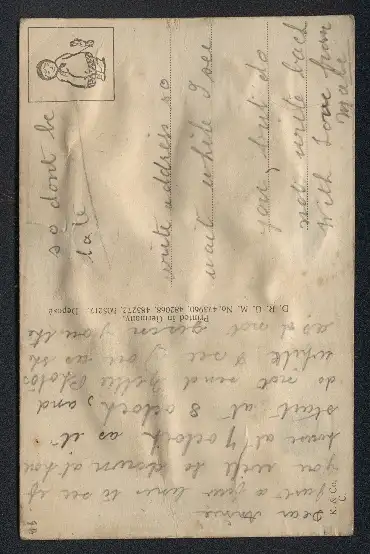 Dear Annie
Just a few lines to see if
you will to down at hou
house at 7 oclock as it
start at 8 oclock, and
do not send Nellie Photo
while I see you as sh
as d not given you the
so dont be
late
write address so
wait while I see
you, but do
not write back
with Love from
Mabe
D. R. G. M. No. 473960, 482068, 485277, 505217. Déposé
Printed in Germany.
K. & Co.